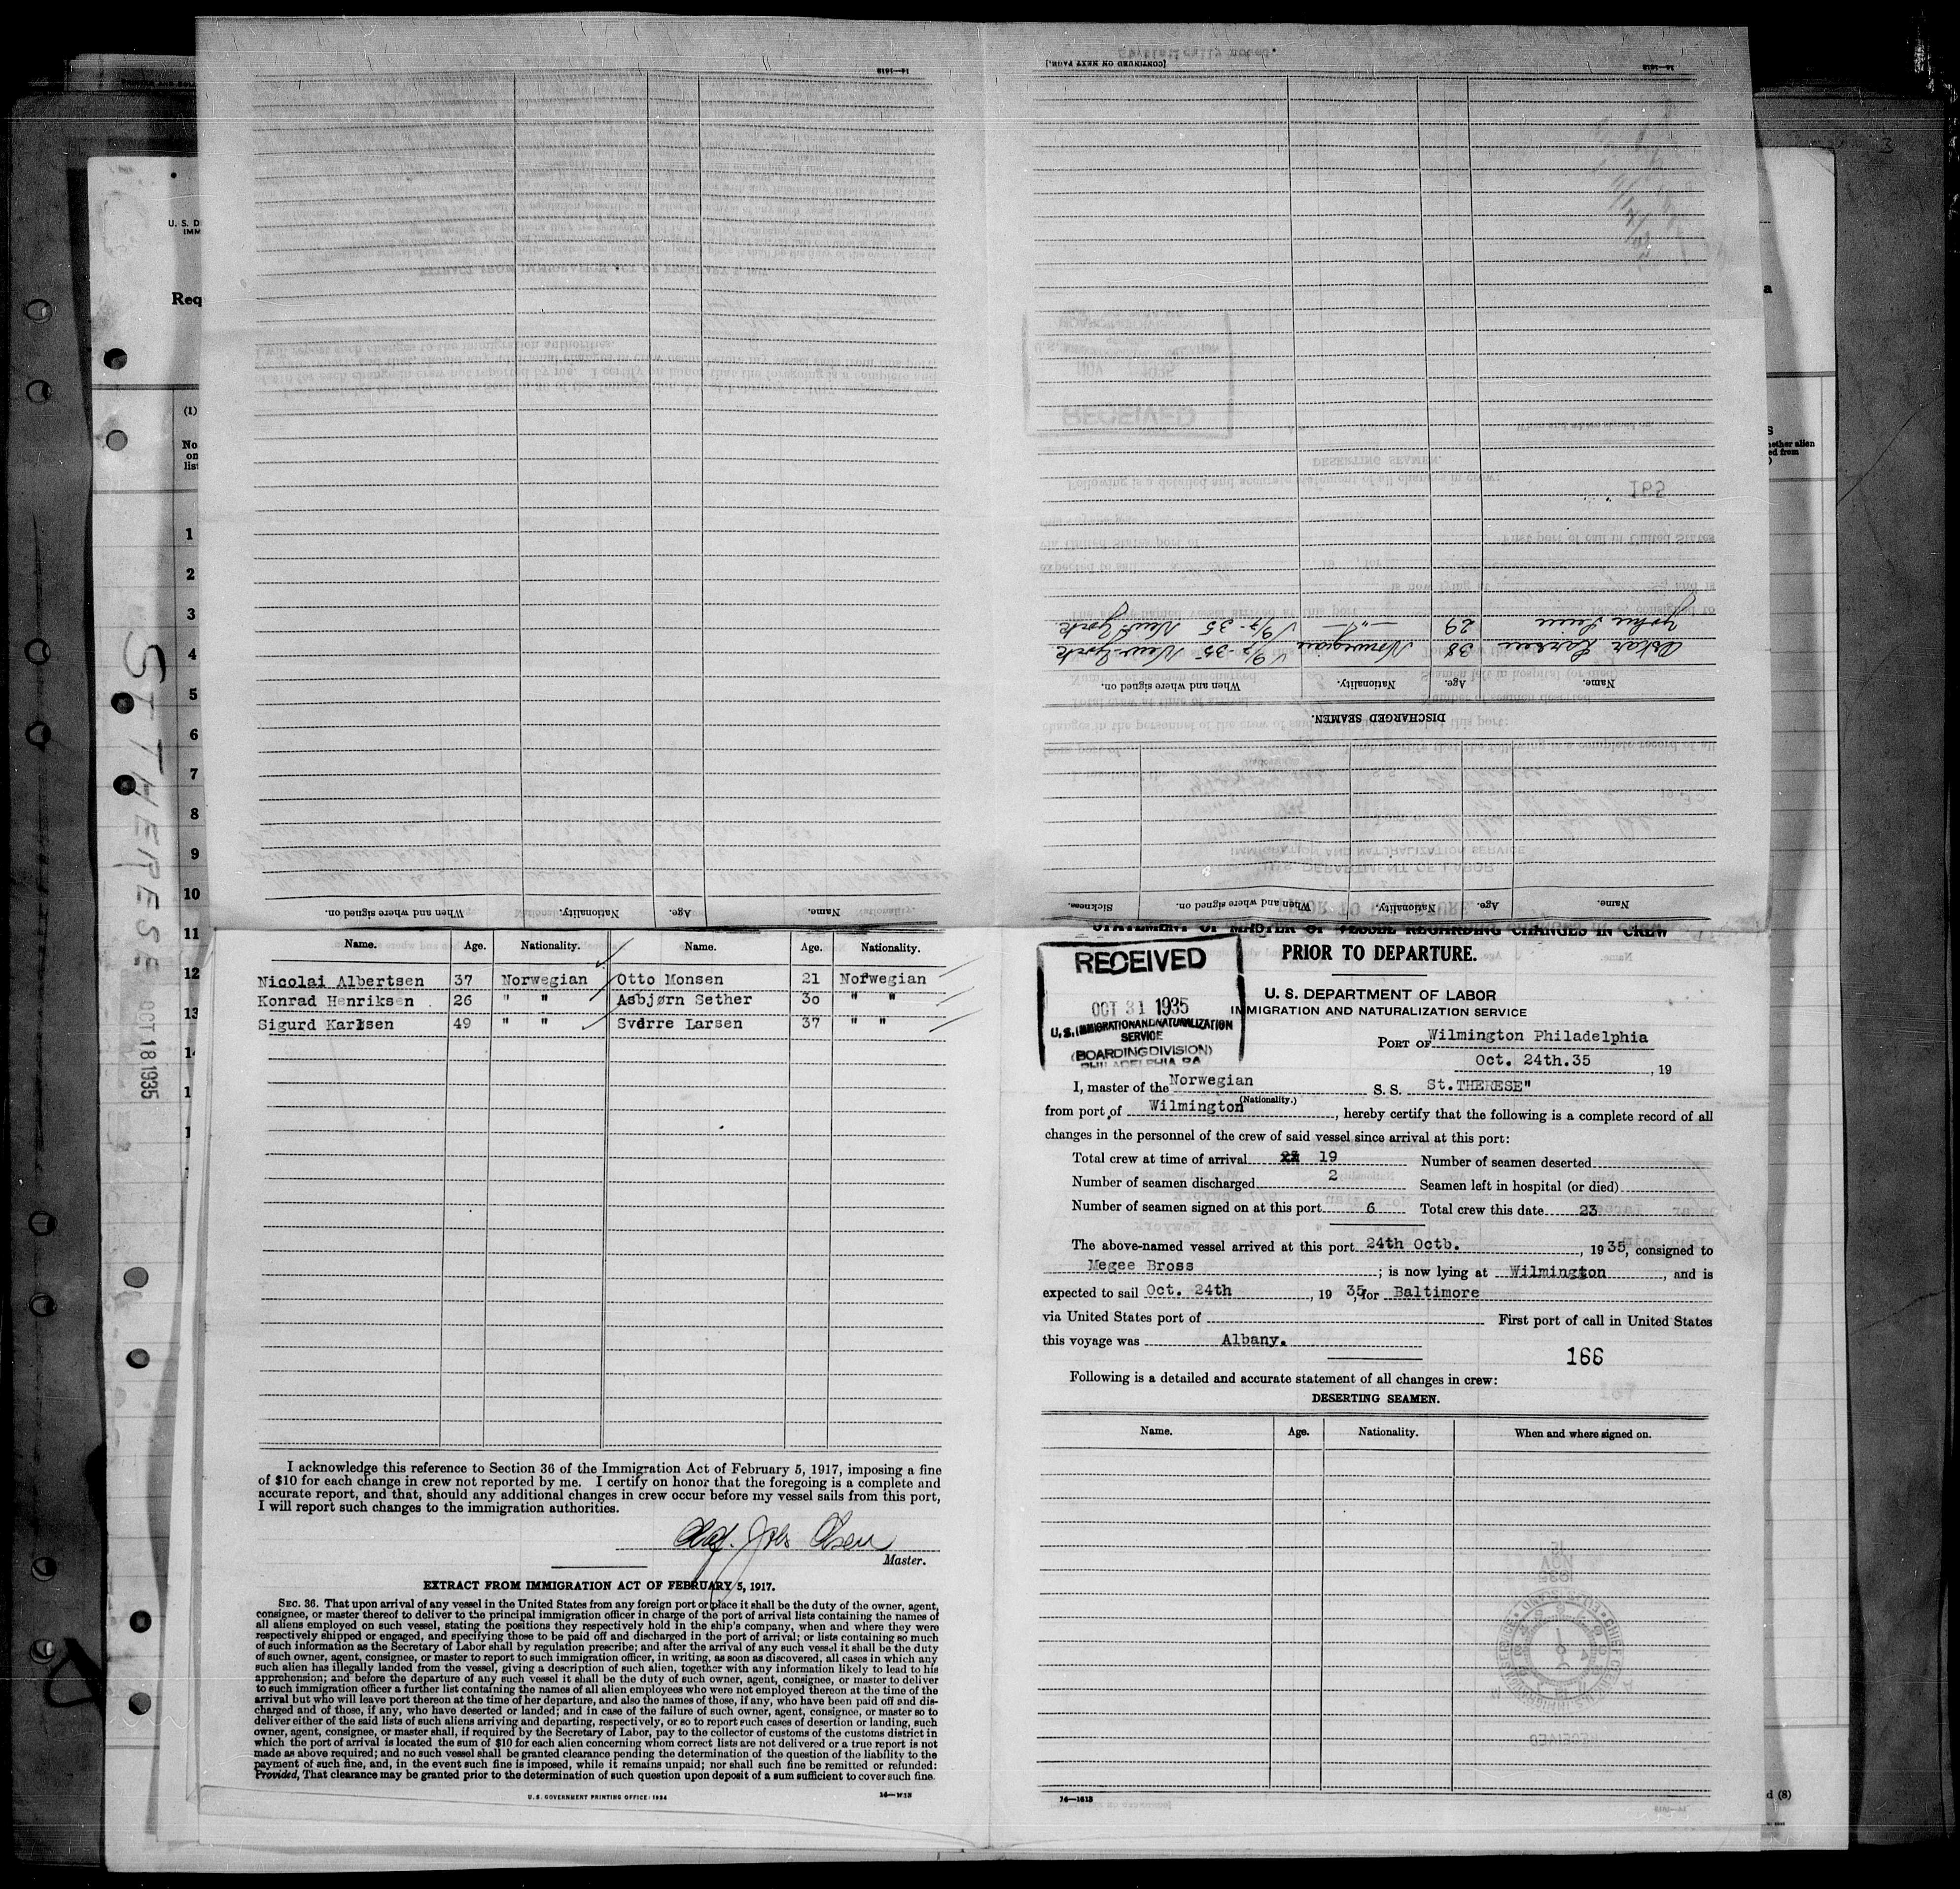 U. S. D
IMM
Req
(1)
No
on
list
1
2
3
4
5
6
7
8
9
10
11
12
13
ST THERESE OCT 18 1935
3
a
S
hether alien
ed from
)
d (8)
16—1613
When and where signed on.
Nationality.
Age.
Name.
[CONTINUED ON NEXT PAGE.]
16—1613
Oskar Larsen 38 Norwegian 9/7-35 New-York
29 —"— 9/7-35 New-York
Name. Age. Nationality. When and where signed on.
DISCHARGED SEAMEN.
Name. Age. Nationality. When and where signed on. Sickness.
Name. Age. Nationality. Name. Age. Nationality.
Nicolai Albertsen 37 Norwegian Otto Monsen 21 Norwegian
Konrad Henriksen 26 " " Asbjørn Sether 30 " "
Sigurd Karlsen 49 " " Sverre Larsen 37 " "
I acknowledge this reference to Section 36 of the Immigration Act of February 5, 1917, imposing a fine
of $10 for each change in crew not reported by me. I certify on honor that the foregoing is a complete and
accurate report, and that, should any additional changes in crew occur before my vessel sails from this port,
I will report such changes to the immigration authorities.
Olaf. Johs Olsen
Master.
EXTRACT FROM IMMIGRATION ACT OF FEBRUARY 5, 1917.
SEC. 36. That upon arrival of any vessel in the United States from any foreign port or place it shall be the duty of the owner, agent,
consignee, or master thereof to deliver to the principal immigration officer in charge of the port of arrival lists containing the names of
all aliens employed on such vessel, stating the positions they respectively hold in the ship's company, when and where they were
respectively shipped or engaged, and specifying those to be paid off and discharged in the port of arrival; or lists containing so much
of such information as the Secretary of Labor shall by regulation prescribe; and after the arrival of any such vessel it shall be the duty
of such owner, agent, consignee, or master to report to such immigration officer, in writing, as soon as discovered, all cases in which any
such alien has illegally landed from the vessel, giving a description of such alien, together with any information likely to lead to his
apprehension; and before the departure of any such vessel it shall be the duty of such owner, agent, consignee, or master to deliver
to such immigration officer a further list containing the names of all alien employees who were not employed thereon at the time of the
arrival but who will leave port thereon at the time of her departure, and also the names of those, if any, who have been paid off and dis-
charged and of those, if any, who have deserted or landed; and in case of the failure of such owner, agent, consignee, or master so to
deliver either of the said lists of such aliens arriving and departing, respectively, or so to report such cases of desertion or landing, such
owner, agent, consignee, or master shall, if required by the Secretary of Labor, pay to the collector of customs of the customs district in
which the port of arrival is located the sum of $10 for each alien concerning whom correct lists are not delivered or a true report is not
made as above required; and no such vessel shall be granted clearance pending the determination of the question of the liability to the
payment of such fine, and, in the event such fine is imposed, while it remains unpaid; nor shall such fine be remitted or refunded:
Provided, That clearance may be granted prior to the determination of such question upon deposit of a sum sufficient to cover such fine.
U. S. GOVERNMENT PRINTING OFFICE: 1934
STATEMENT OF MASTER OF VESSEL REGARDING CHANGES IN CREW
PRIOR TO DEPARTURE.
RECEIVED
OCT 31 1935
U. S. IMMIGRATION AND NATURALIZATION
SERVICE
(BOARDING DIVISION)
PHILADELPHIA PA
U. S. DEPARTMENT OF LABOR
IMMIGRATION AND NATURALIZATION SERVICE
PORT OF Wilmington Philadelphia
Oct. 24th.35 , 19
I, master of the Norwegian S. S. St.THERESE"
(Nationality.)
from port of Wilmington , hereby certify that the following is a complete record of all
changes in the personnel of the crew of said vessel since arrival at this port:
Total crew at time of arrival 19 Number of seamen deserted
Number of seamen discharged 2 Seamen left in hospital (or died)
Number of seamen signed on at this port 6 Total crew this date 23
The above-named vessel arrived at this port 24th Octb. , 1935, consigned to
Megee Bross ; is now lying at Wilmington , and is
expected to sail Oct. 24th , 19 35, for Baltimore
via United States port of First port of call in United States
this voyage was Albany.
166
Following is a detailed and accurate statement of all changes in crew:
DESERTING SEAMEN.
Name. Age. Nationality. When and where signed on.
14—1613